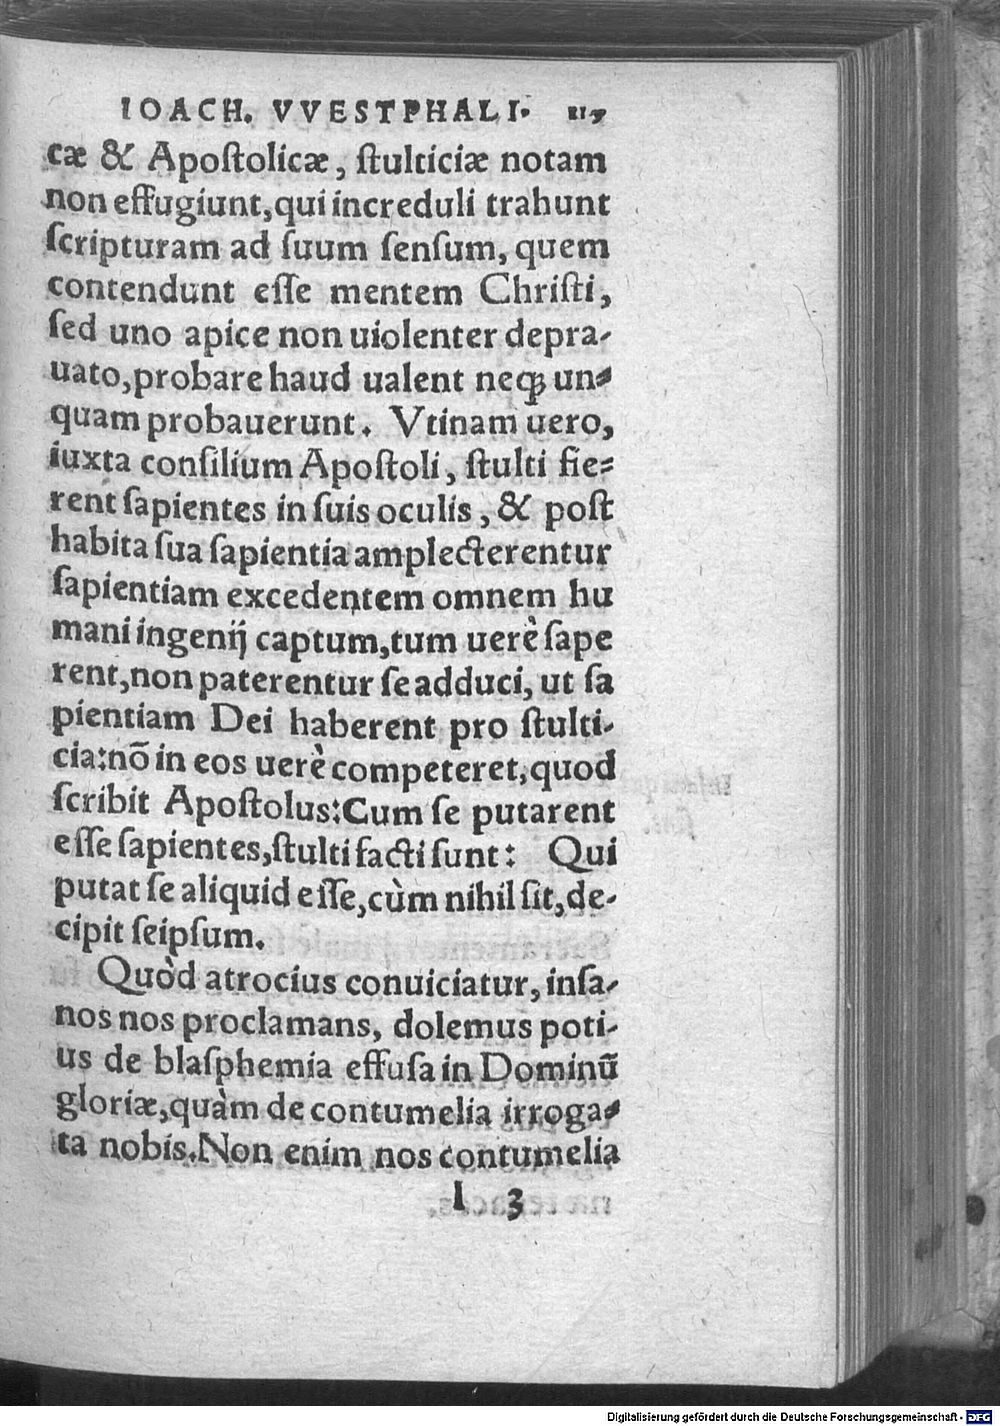 IOACH. VVESTPHALI. 117
cæ & Apostolicæ, stulticiæ notam
non effugiunt, qui increduli trahunt
scripturam ad suum sensum, quem
contendunt esse mentem Christi,
sed uno apice non uiolenter depra-
uato, probare haud ualent neqꝫ un-
quam probauerunt. Vtinam uero,
iuxta consilium Apostoli, stulti fie-
rent sapientes in suis oculis, & post
habita sua sapientia amplecterentur
sapientiam excedentem omnem hu
mani ingenij captum, tum uerè sape
rent, non paterentur se adduci, ut sa
pientiam Dei haberent pro stulti-
cia: nõ in eos uerè competeret, quod
scribit Apostolus: Cum se putarent
esse sapientes, stulti facti sunt: Qui
putat se aliquid esse, cùm nihil sit, de-
cipit seipsum.
Quòd atrocius conuiciatur, insa-
nos nos proclamans, dolemus poti-
us de blasphemia effusa in Dominũ
gloriæ, quàm de contumelia irroga-
ta nobis. Non enim nos contumelia
I 3
Digitalisierung gefördert durch die Deutsche Forschungsgemeinschaft - DFG